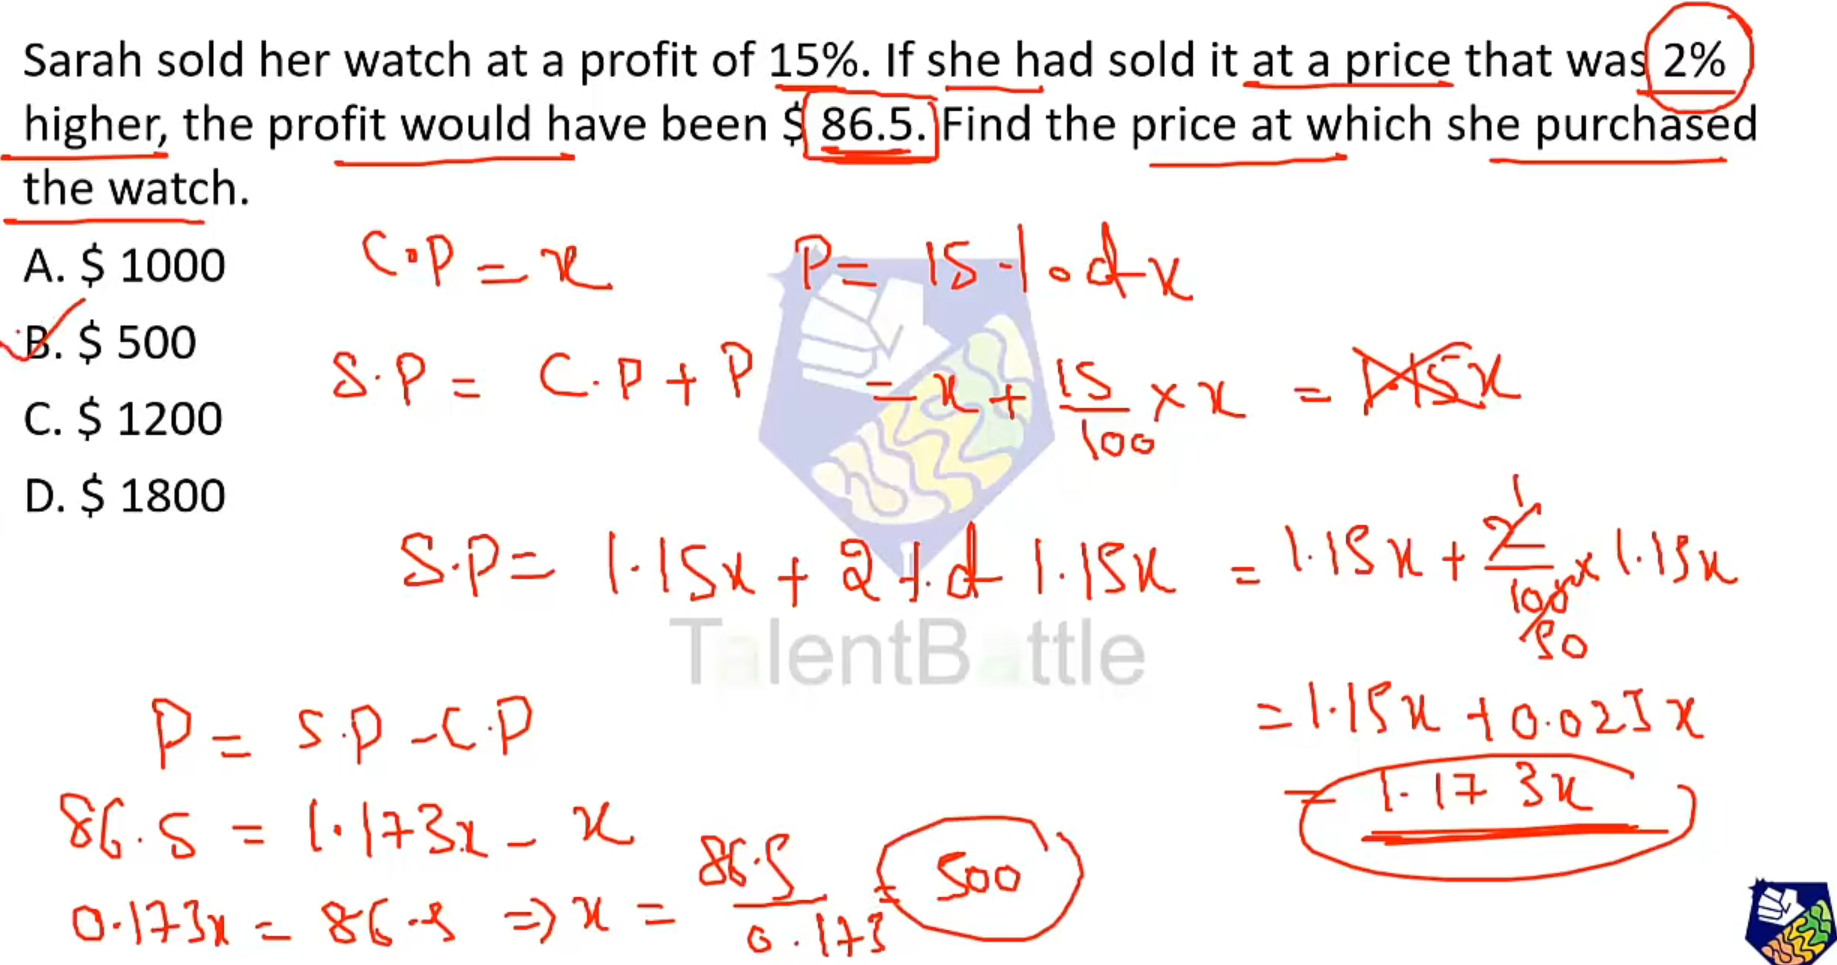 Sarah sold her watch at a profit of 15%. If she had sold it at a price that was 2%
higher, the profit would have been $ 86.5. Find the price at which she purchased
the watch.
A. $ 1000
B. $ 500
C. $ 1200
D. $ 1800
C.P = x
P = 15% of x
S.P = C.P + P = x + 15/100 × x = 1.15x
S.P = 1.15x + 2% of 1.15x = 1.15x + 2/100 × 1.15x
1
50
= 1.15x + 0.023x
= 1.173x
TalentBattle
P = S.P - C.P
86.5 = 1.173x - x
0.173x = 86.5 => x = 86.5/0.173 = 500